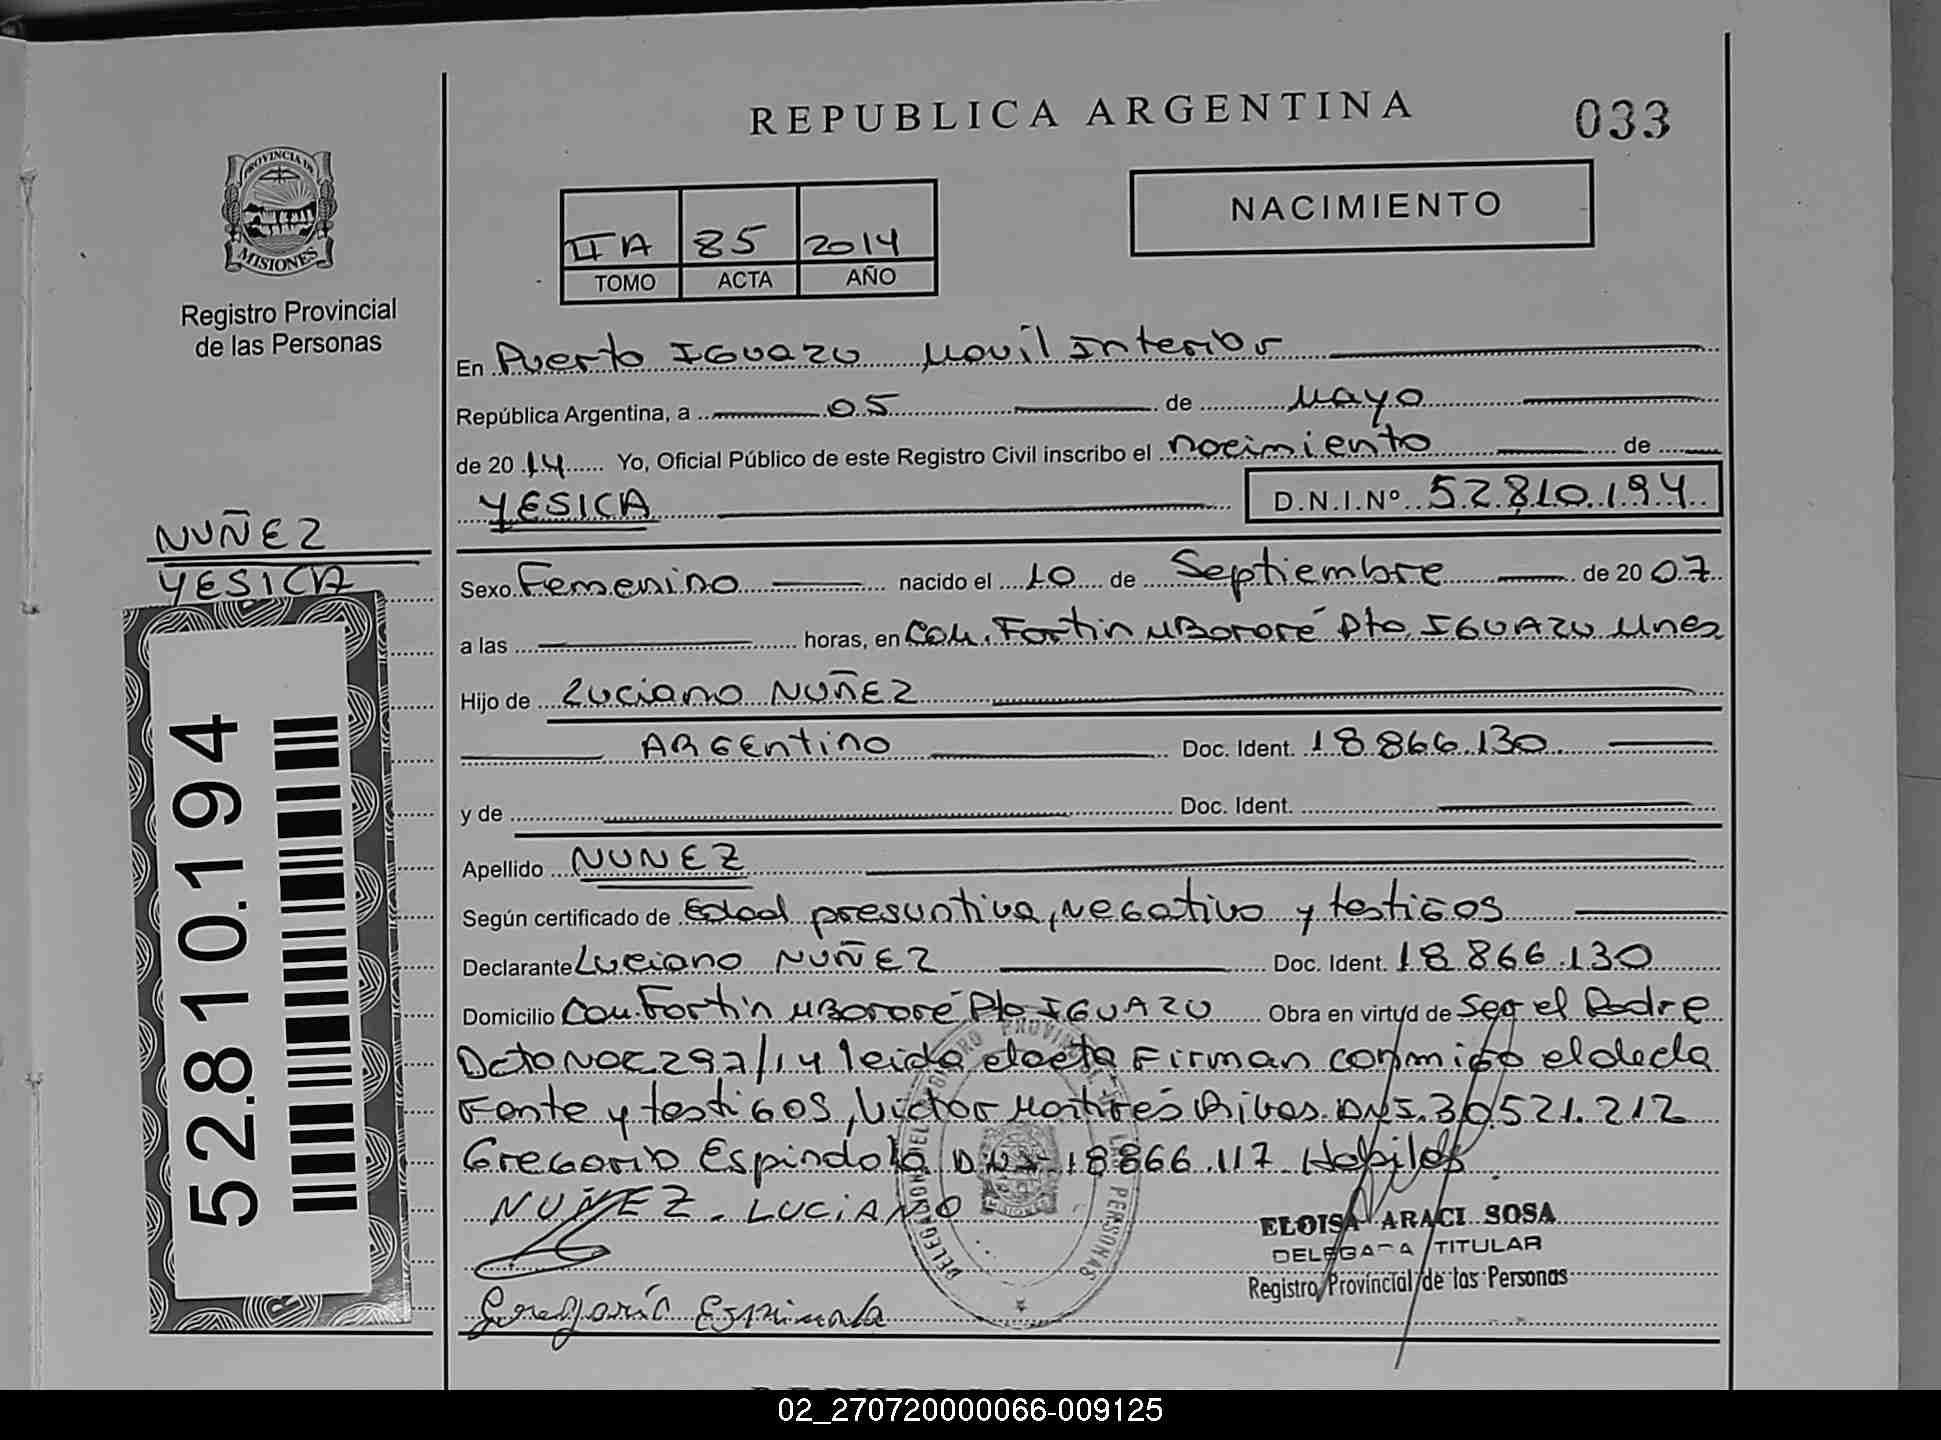 REPUBLICA ARGENTINA
033
PROVINCIA DE
MISIONES
Registro Provincial
de las Personas
NACIMIENTO
II A 85 2014
TOMO ACTA AÑO
En Puerto IGUAZU Movil Interior
República Argentina, a 05 de Mayo
de 20 14 Yo, Oficial Público de este Registro Civil inscribo el nacimiento de
YESICA D.N.I.Nº 52.810.194
NUÑEZ
YESICA
52.810.194
Sexo Femenino nacido el 10 de Septiembre de 20 07
a las horas, en Com. Fortin MBororé Pto. IGUAZU Mnes
Hijo de Luciano NUÑEZ
ARGEntino Doc. Ident. 18.866.130
y de Doc. Ident.
Apellido NUNEZ
Según certificado de Edad presuntiva, negativo y testigos
Declarante Luciano NUÑEZ Doc. Ident. 18.866.130
Domicilio Com. Fortin MBororé Pto IGUAZU Obra en virtud de Ser el Padre
Dcto 297/14 leida el acta Firman conmigo el decla
rante y testigos, Victor Rivas DNI. 30.521.212
Gregorio Espindola DNI 18866.117 Habiles
NUÑEZ - LUCIANO
ELOISA ARACI SOSA
DELEGADA TITULAR
Registro Provincial de las Personas
Gregorio Espindola
02_270720000066-009125